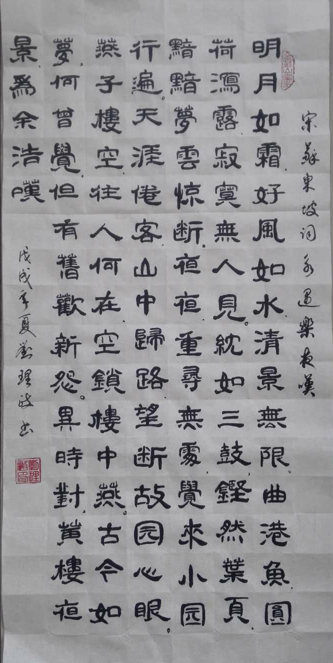 宋蘇東坡词永遇樂夜嘆
明月如霜好風如水清景無限曲港魚圓
荷瀉露寂寞無人見紞如三鼓鏗然葉頁
黯黯夢雲惊断亱亱重尋無處覺來小园
行遍天涯倦客山中歸路望断故园心眼
燕子樓空佳人何在空鎖樓中燕古今如
夢何曾覺但有舊歡新怨異時對黄樓亱
景為余浩嘆
戊戌年夏劉理政书